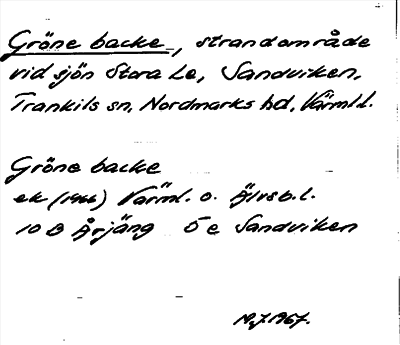 Gröne backe, strandområde
vid sjön Stora Le, Sandviken,
Trankils sn, Nordmarks hd, Värml.l.
Gröne backe
ek (1966) Värml. o. Älvsb.l.
10 B Årjäng 5 e Sandviken
19.7.1967.